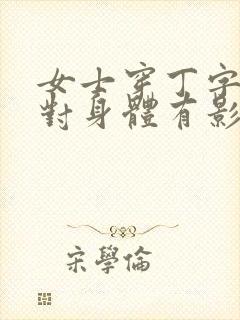 女士穿丁字
對身體有影
宋學倫